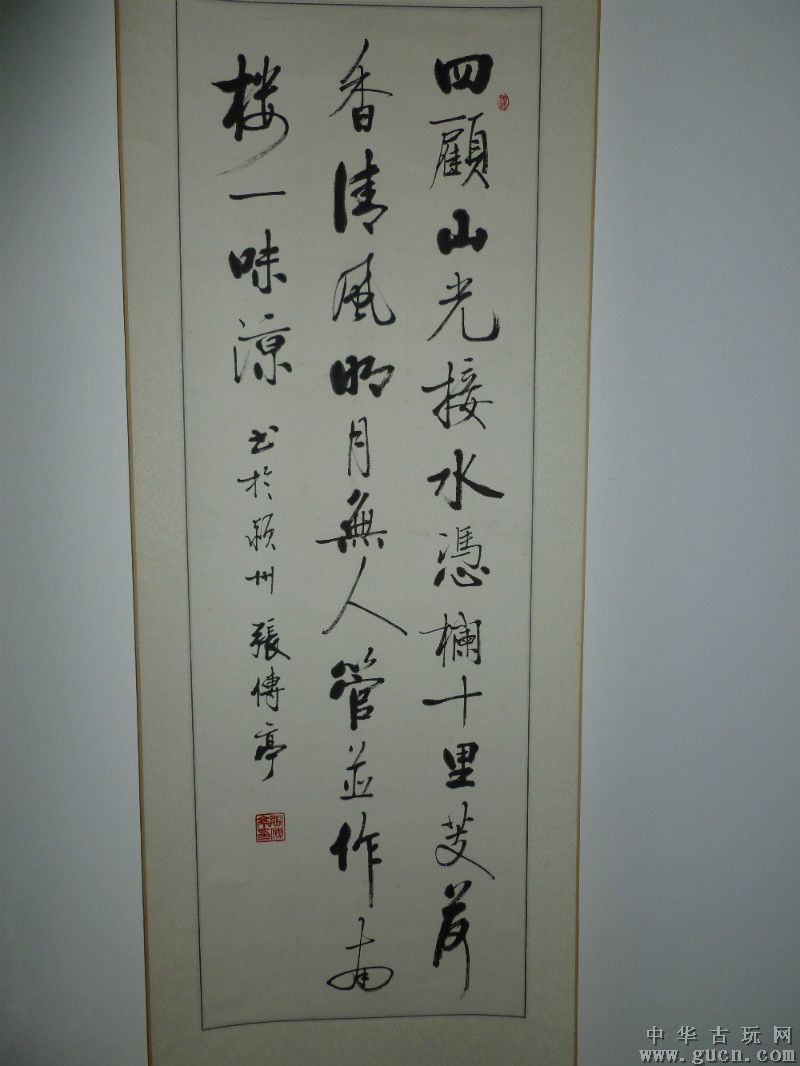 四顧山光接水憑欄十里芰荷
香清風明月無人管並作南
楼一味涼
书於颍州 張傳亭
中华古玩网
www.gucn.com